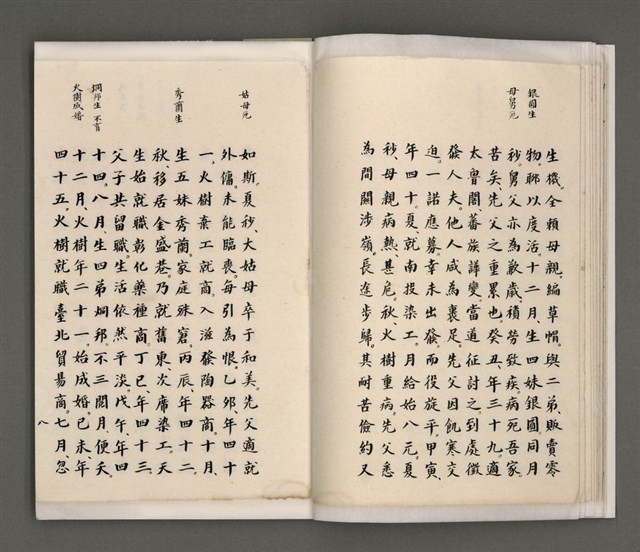 銀圓生
母舅死
生機。全賴母親、編草帽。與二弟、販賣零
物。聊以度活。十二月、生四妹銀圓。同月
秒、舅父亦為歉歲、積勞致疾、病死吾家。
苦矣、先父之重累也。癸丑、年三十九。適
太魯閣、蕃族譁變。當道征討之。到處徵
發人夫。他人咸為裹足。先父因飢寒交
迫、一諾應募。幸未出發、而役旋平。甲寅、
年四十。夏、就南投染工。月給始八元。夏
秒、母親病熱、甚危。秋、火樹重病。先父悉
為間關涉嶺。長途步歸。其耐苦儉約、又
姑母死
秀蘭生
烱邦生 不育
火樹成婚
如斯。夏秒、大姑母卒于和美。先父適就
外傭。未能臨喪。每引為恨。乙卯、年四十
一。火樹棄工就商。入滋發陶器商。十月、
生五妹秀蘭。家庭殊窘。丙辰、年四十二。
秋、移居金盛巷。乃就舊東、次席染工。天
生始就職彰化藥種商。丁巳、年四十三。
父子共留職。生活依然平淡。戊午、年四
十四。八月、生四弟烱邦。不三閱月、便夭。
十二月、火樹年二十一。始成婚。己未、年
四十五。火樹就職臺北貿易商。七月、忽
八